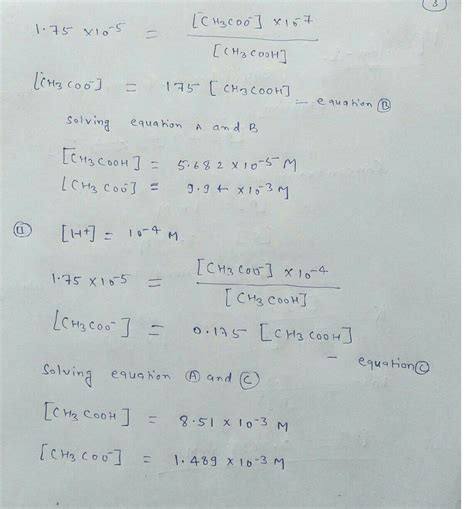 3
1.75 × 10-5 = [CH3COO-] × 10-7 / [CH3COOH]
[CH3COO-] = 175 [CH3COOH] — equation (B)
Solving equation A and B
[CH3COOH] = 5.682 × 10-5 M
[CH3COO-] = 9.94 × 10-3 M
(II) [H+] = 10-4 M
1.75 × 10-5 = [CH3COO-] × 10-4 / [CH3COOH]
[CH3COO-] = 0.175 [CH3COOH]
— equation (C)
Solving equation (A) and (C)
[CH3COOH] = 8.51 × 10-3 M
[CH3COO-] = 1.489 × 10-3 M